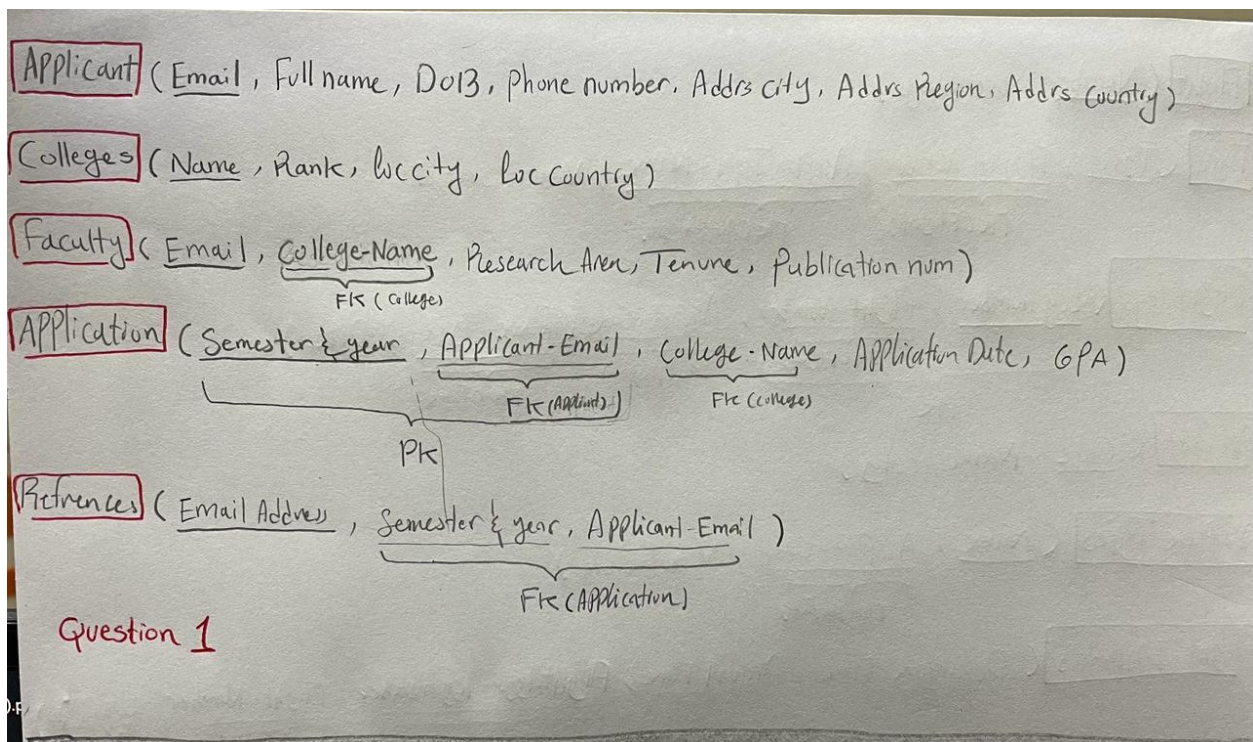 Applicant ( Email , Full name , DOB , Phone number , Addrs city , Addrs Region , Addrs Country )
Colleges ( Name , Rank , loc city , Loc Country )
Faculty ( Email , College-Name , Research Area , Tenure , Publication num )
FK ( College )
Application ( Semester & year , Applicant-Email , College-Name , Application Date , GPA )
FK (Applicant) FK (College)
PK
Refrences ( Email Address , Semester & year , Applicant-Email )
FK (Application)
Question 1